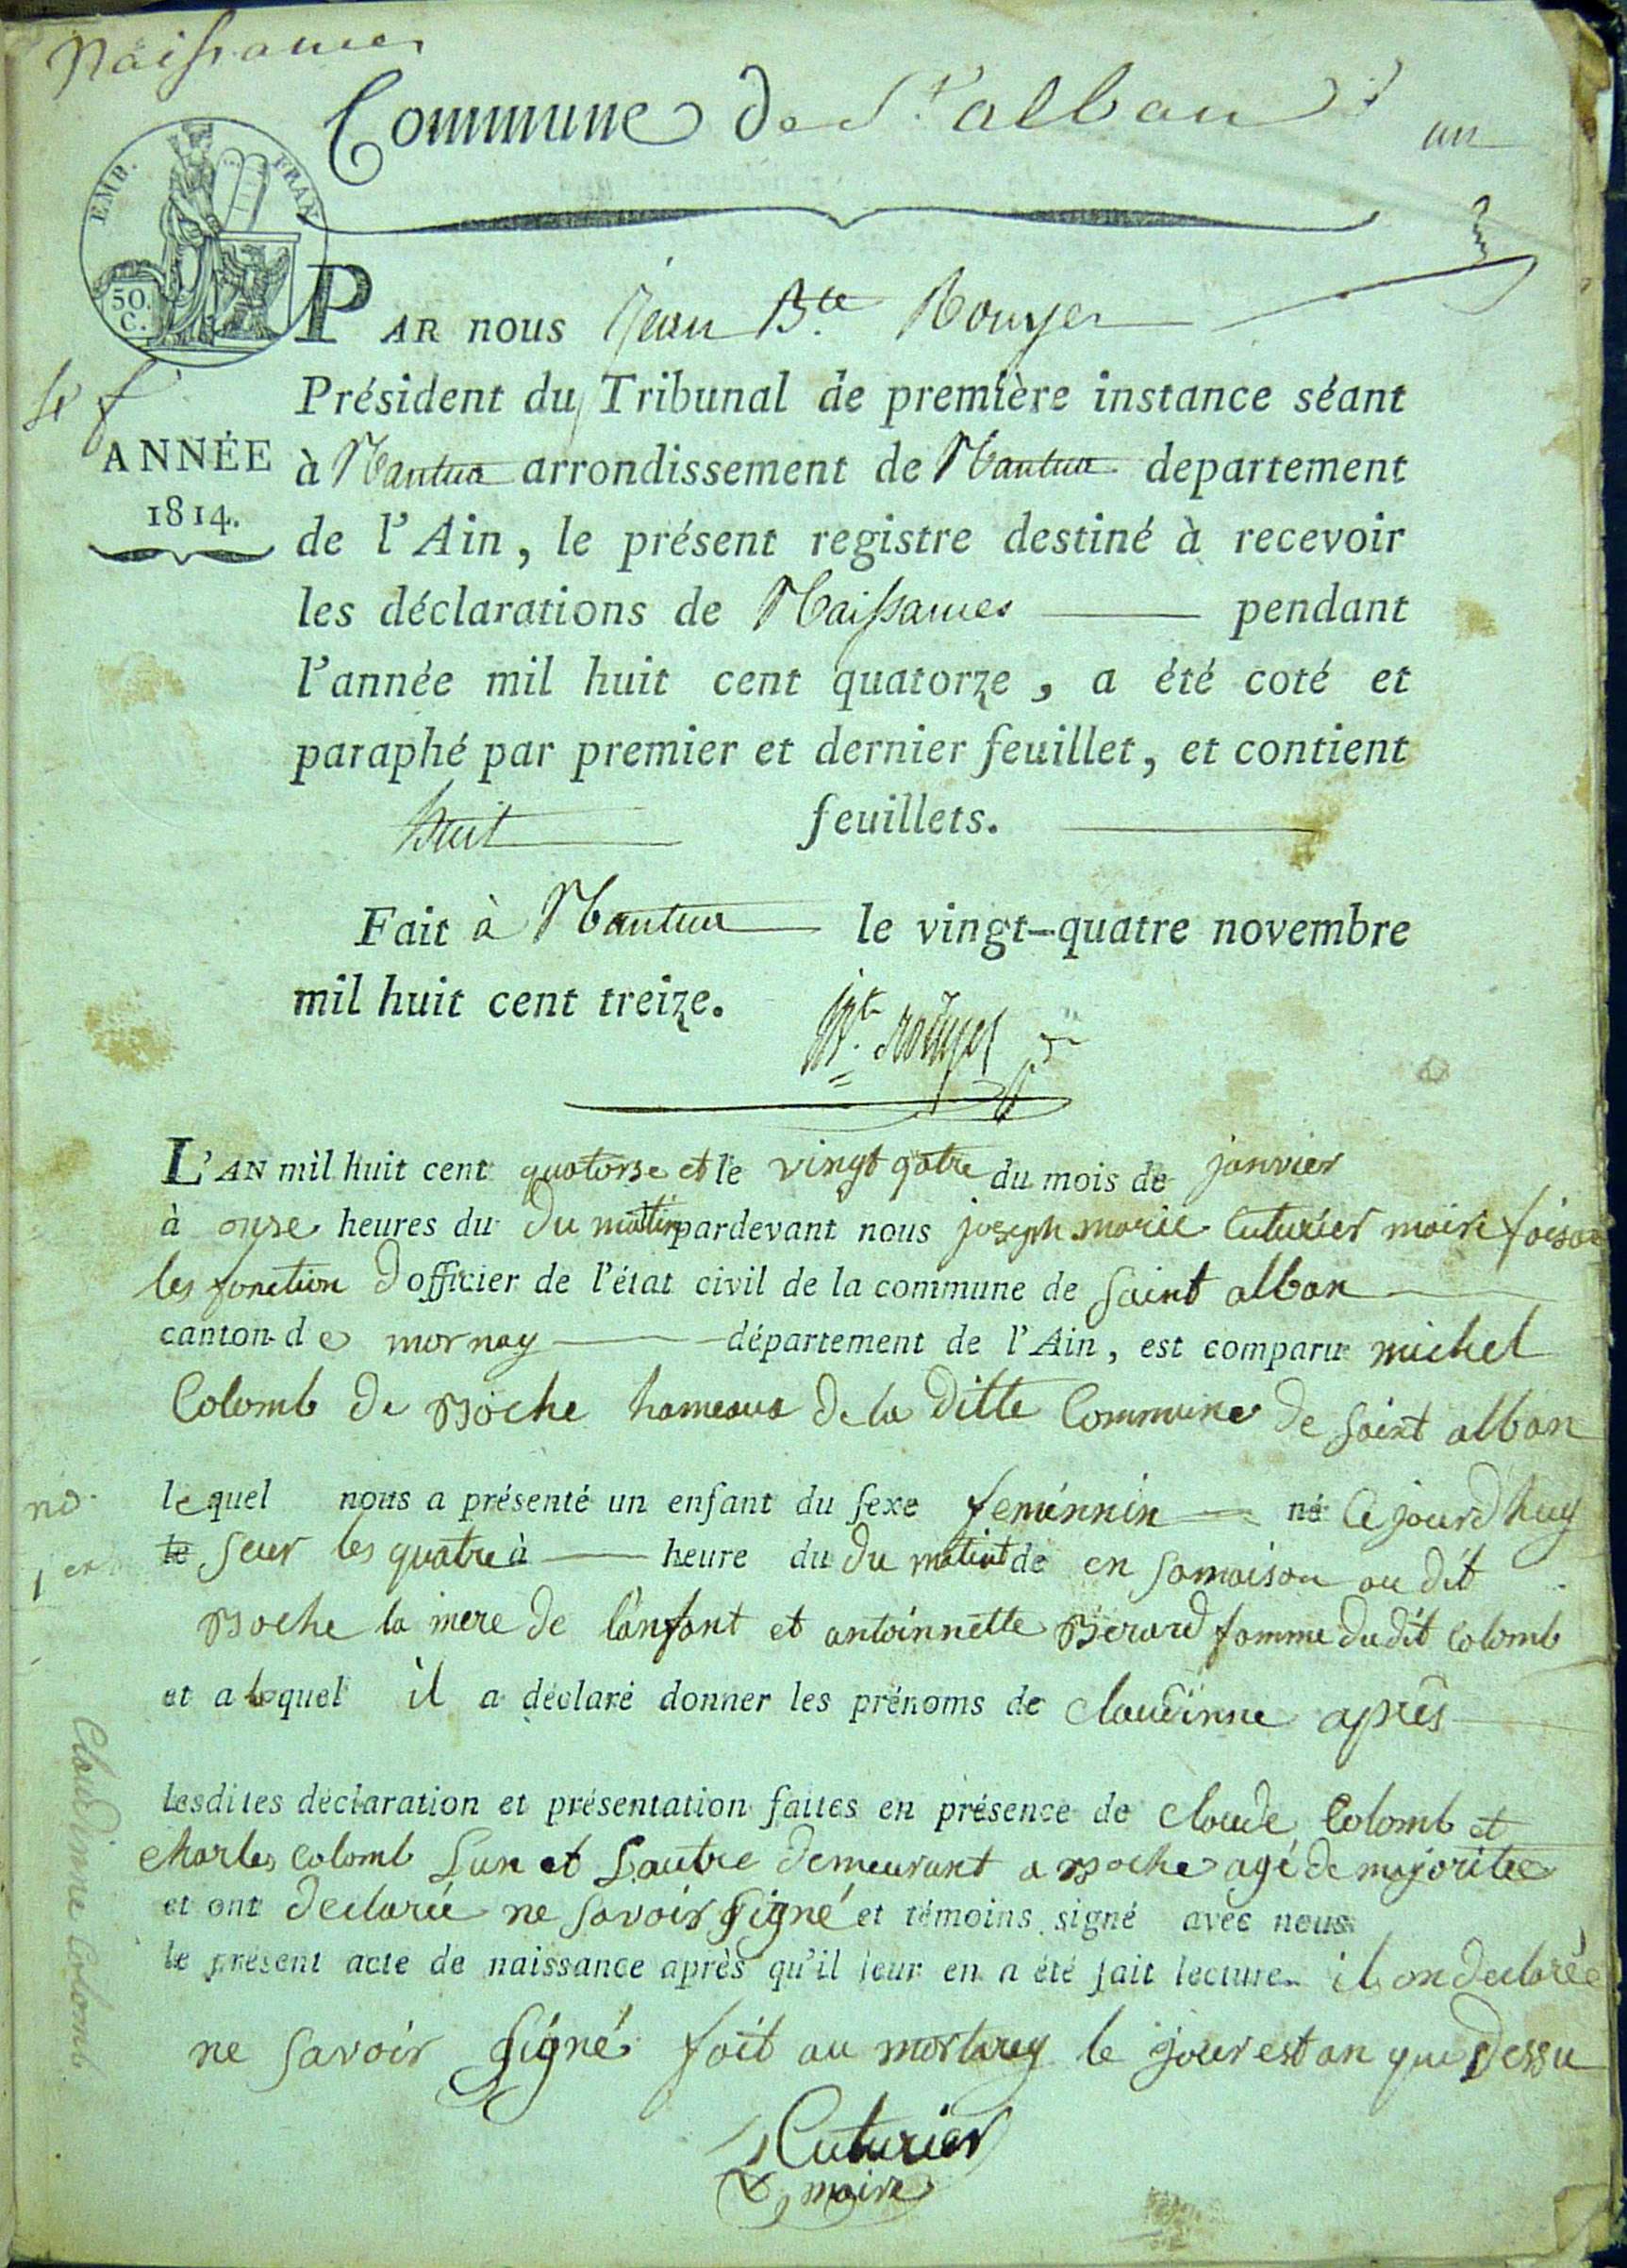 Naissances
Commune de St. alban
un
EMP. FRAN.
50. C.
PAR nous Jean Bte. Rouyer
Président du Tribunal de première instance séant
ANNÉE
1814.
à Nantua arrondissement de Nantua departement
de l'Ain, le présent registre destiné à recevoir
les déclarations de Naissances pendant
l'année mil huit cent quatorze, a été coté et
paraphé par premier et dernier feuillet, et contient
huit feuillets.
Fait à Nantua le vingt-quatre novembre
mil huit cent treize.
Jn Bte. Rouyer
L'AN mil huit cent quatorse et le vingt qatre du mois de janvier
à onse heures du du mattin pardevant nous joseph marie Cuturier maire foisan
les fonction d officier de l'état civil de la commune de saint alban
canton de mornay département de l'Ain, est comparu michel
Colomb de Boche hameaux de la ditte Commune de saint alban
no. 1er
lequel nous a présenté un enfant du sexe feminnin né Ce jourdhuy
le seur les quatre à heure du du matint de en samaison au dit
Boche la mere de l'anfant et antoinnette Berard famme du dit Colomb
et a lequel il a déclaré donner les prénoms de claudinne après
lesdites déclaration et présentation faites en présence de claude Colomb et
charles Colomb Lun et Lautre demeurant a Boche agé de majoritée
et ont declarée ne savoir signé et témoins signé avec nous
le présent acte de naissance après qu'il leur en a été fait lecture. il on declarée
ne savoir signé fait au mortarey le jour est an que dessu
Cuturier
maire
Claudinne Colomb